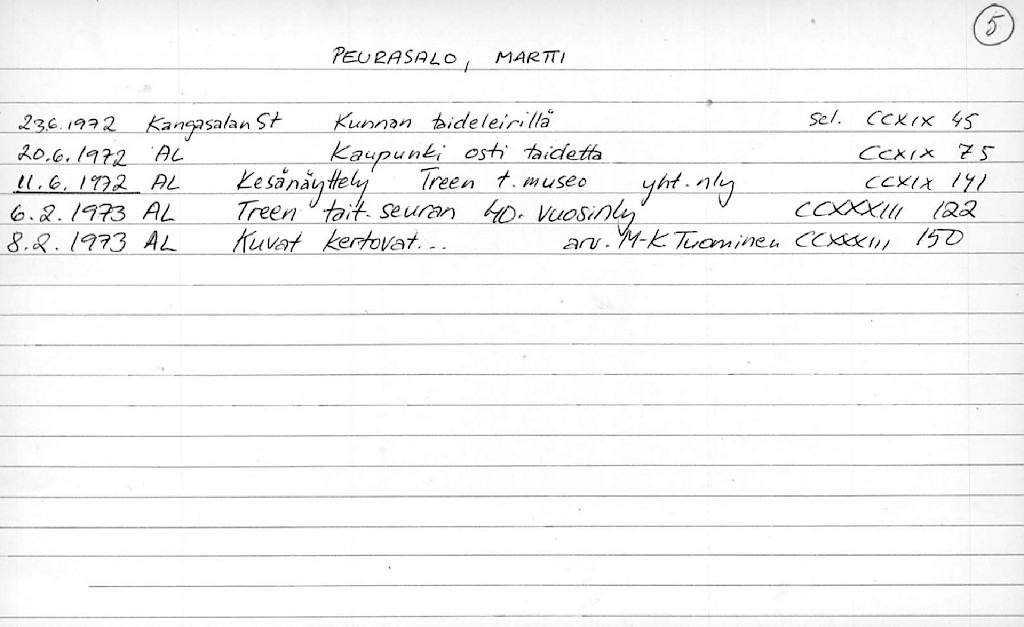 5
PEURASALO, MARTTI
23.6.1972 Kangasalan St Kunnan taideleirillä sel. CCXIX 45
20.6.1972 AL Kaupunki osti taidetta CCXIX 75
11.6.1972 AL Kesänäyttely Treen t. museo yht. nly CCXIX 141
6.2.1973 AL Treen tait. seuran 40. vuosinly CCXXXIII 122
8.2.1973 AL Kuvat kertovat... arv. M-K Tuominen CCXXXIII 150